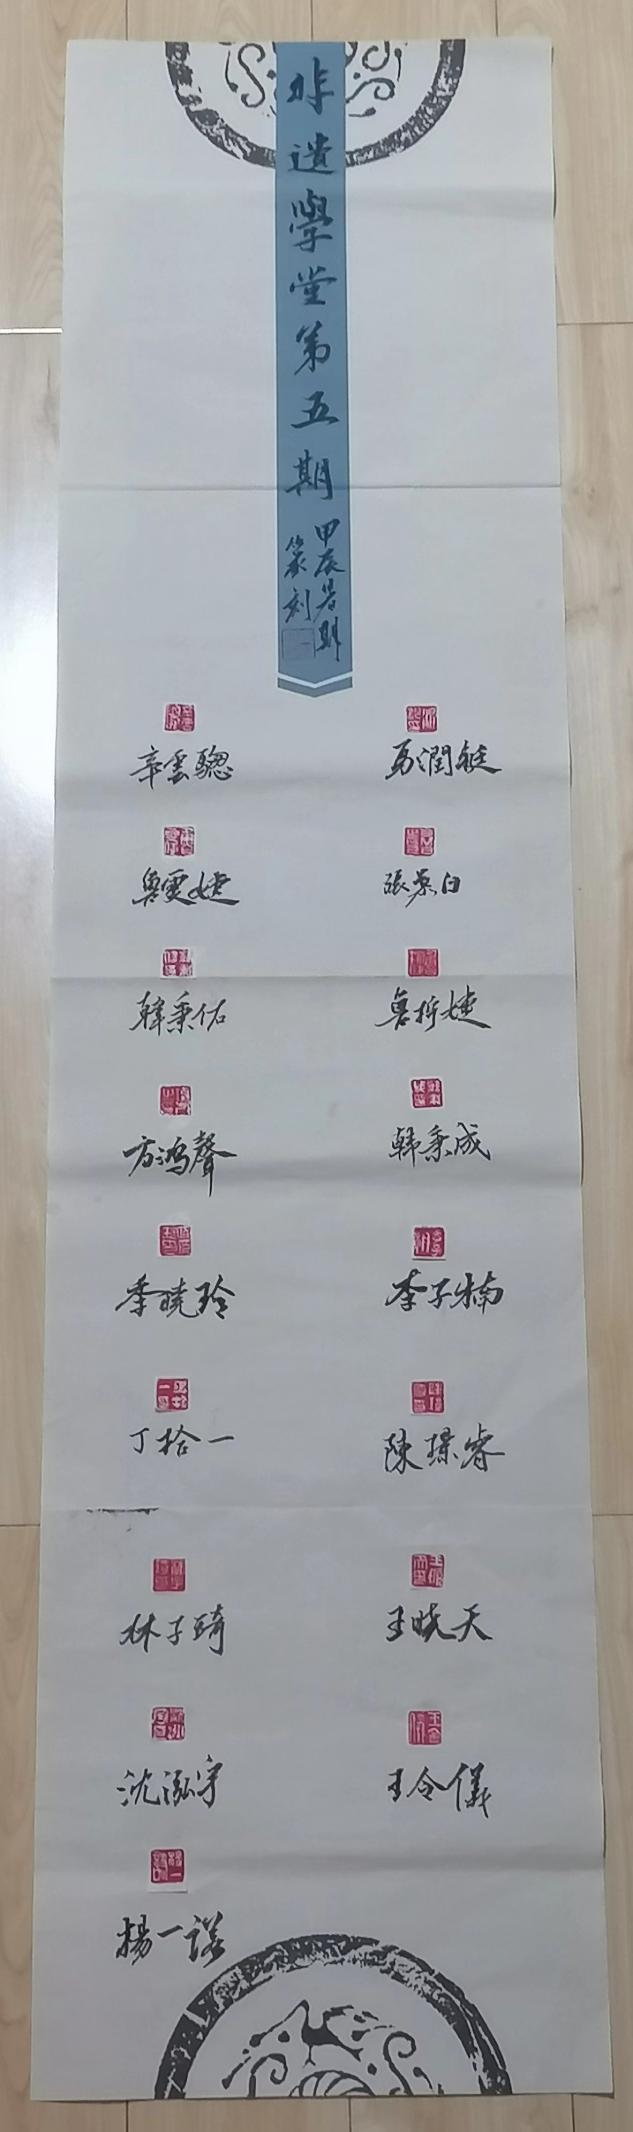 非遺學堂第五期
甲辰暑期
篆刻
辛雲驄
馬潤鋌
魯雯婕
張慕白
韓秉佑
魯折婕
方鸿聲
韩秉成
季曉玲
李子楠
丁拾一
陳璟睿
林子琦
王晓天
沈泓宇
王令儀
楊一諾